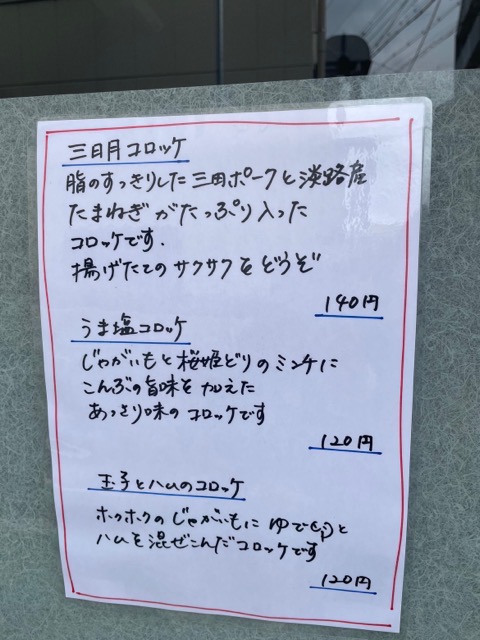 三日月コロッケ
脂のすっきりした三田ポークと淡路産
たまねぎがたっぷり入った
コロッケです.
揚げたてのサクサクをどうぞ
140円
うま塩コロッケ
じゃがいもと桜姫どりのミンチに
こんぶの旨味を加えた
あっさり味のコロッケです
120円
玉子とハムのコロッケ
ホクホクのじゃがいもにゆで卵と
ハムを混ぜこんだコロッケです
120円